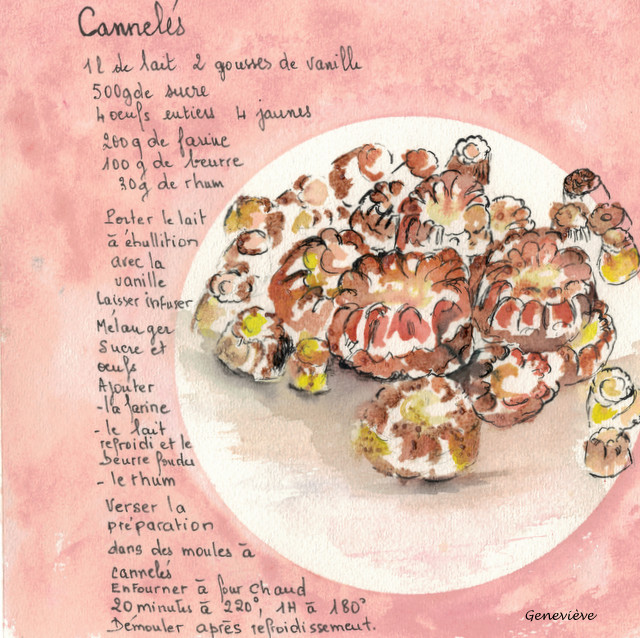 Cannelés
1l de lait 2 gousses de vanille
500g de sucre
4 oeufs entiers 4 jaunes
200g de farine
100g de beurre
30g de rhum
Porter le lait
à ébullition
avec la
vanille
Laisser infuser
Mélanger
Sucre et
oeufs
Ajouter
- la farine
- le lait
refroidi et le
beurre fondu
- le rhum
Verser la
préparation
dans des moules à
cannelés
Enfourner à four chaud
20 minutes à 220°, 1H à 180°
Démouler après refroidissement.
Geneviève